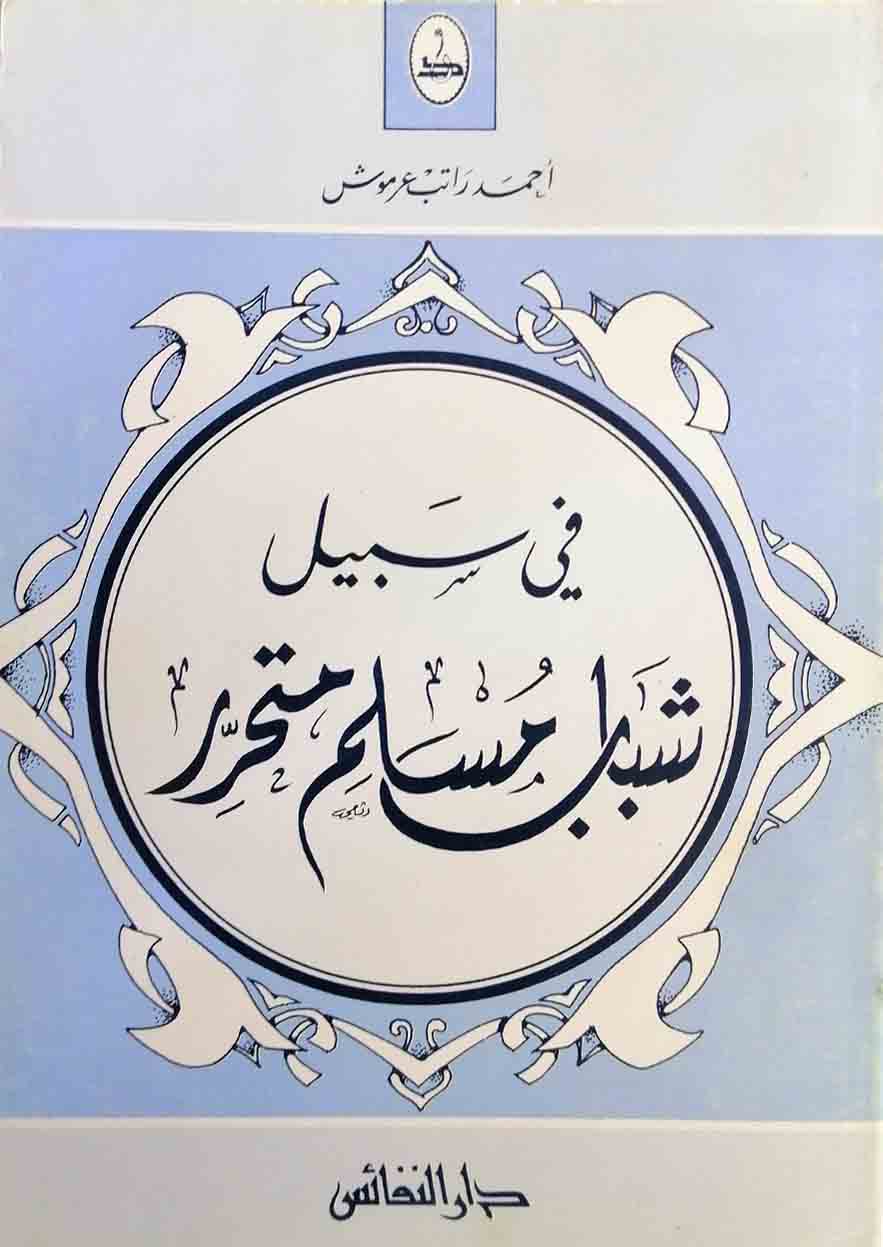 أحمد راتب عرموش
في سبيل
شباب مسلم متحرر
دار النفائس